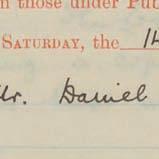 n those under Pu
SATURDAY, the 14
Mr. Daniel